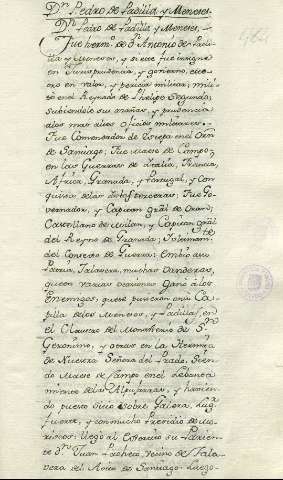 Dn. Pedro de Padilla y Meneses
Dn. Pedro de Padilla y Meneses,
Fue herm.o de dn Antonio de Padi
lla y Meneses, y si este fue insigne
en Jurisprudencia, y govierno, este
en valor, y pericia militar; mili
tó en el Reynado de Phelipe Segundo,
subiendole su mañas, y prudencia
alos mas altos oficios militares.
Fue Comendador de Estepa en el Orn
de Santiago; Fue Maese de Campo
en las Guerras de Italia, Francia,
Africa, Granada, y Portugal, y con
quista de las Islas Terceras; Fue Go
vernador, y Capitan gral de Oran;
Castellano de Milan, y Capitan gral
del Reyno de Granada;
del Consejo de Guerra; Embió a su
Patria, Talavera, muchas Vanderas,
que en varias ocasiones ganó a los
Enemigos, que se pusieron en la Ca
pilla de los Meneses, y Padillas, en
el Claustro del Monasterio de Sn
Geronimo, y otras en la Hermita
de Nuestra Señora del Prado. Sien
do Maese de Campo en el Levanta
miento de las Alpujarras, y havien
do puesto sitio sobre Galera, Lug.
fuerte, y con mucho Presidio de mo
riscos; llegó al Exercito su Parien
te dn Juan Pacheco, vecino de Tala
vera del Avito de Santiago, luego